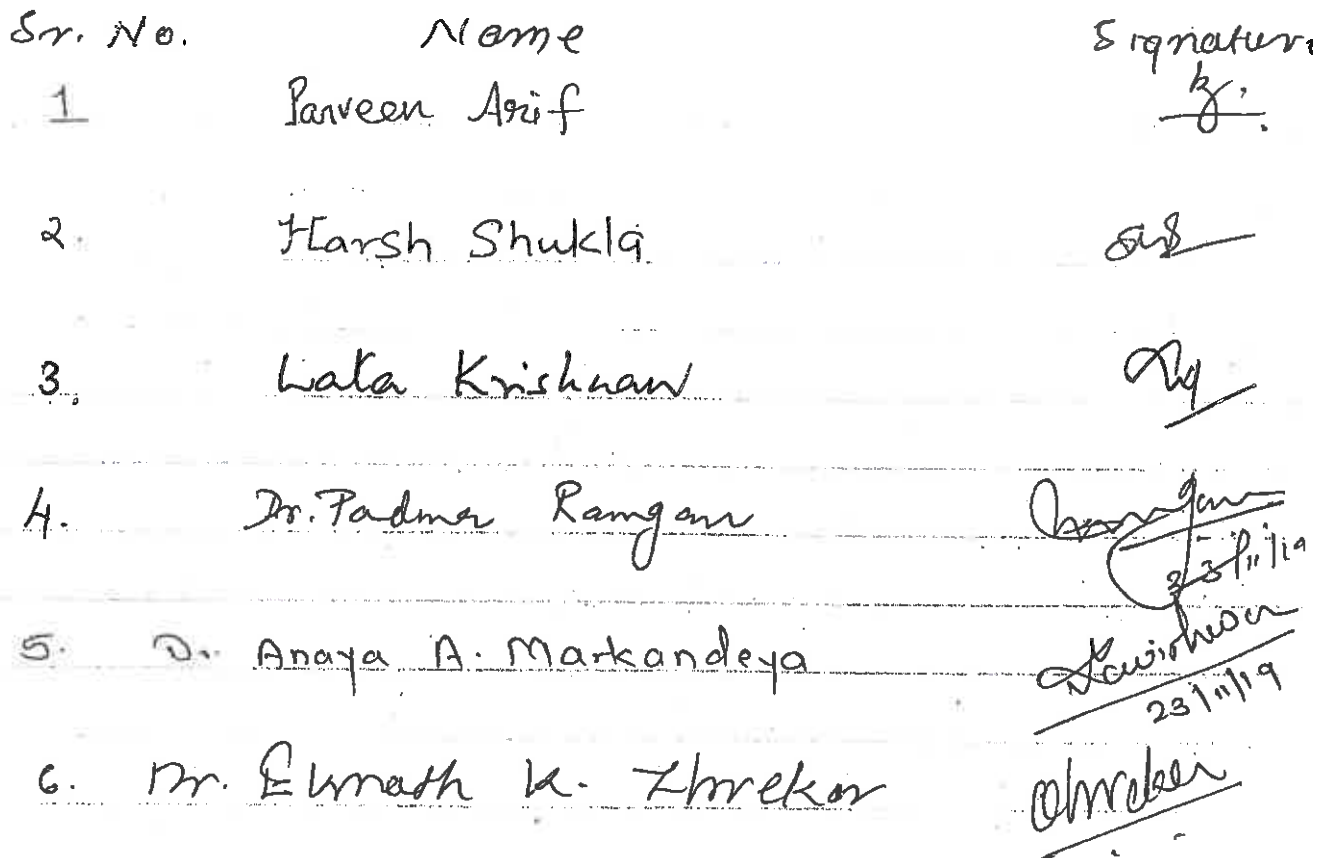 Sr. No. Name Signatur
1 Parveen Arif
2. Harsh Shukla
3. Lata Krishnan
4. Dr. Padma Rangan
23/11/19
5. D. Anaya A. Markandeya
23/11/19
6. Dr. Eknath K.